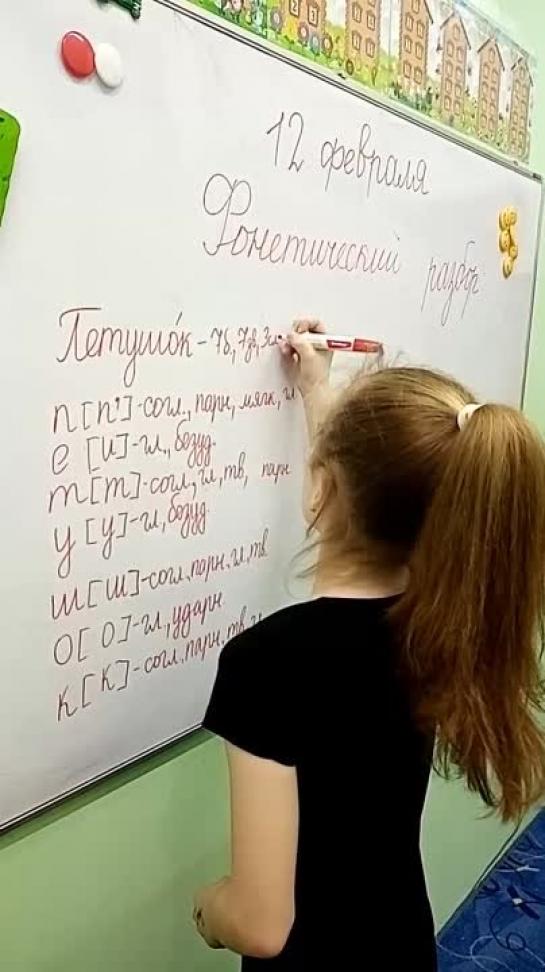 12 февраля
Фонетический разбор
Петушо́к - 7б, 7зв, 3
п [п'] - согл., парн, мягк, гл
е [и] - гл., безуд.
т [т] - согл, гл, тв, парн
у [у] - гл, безуд.
ш [ш] - согл, парн, гл, тв
о [о] - гл, ударн.
к [к] - согл, парн, тв,